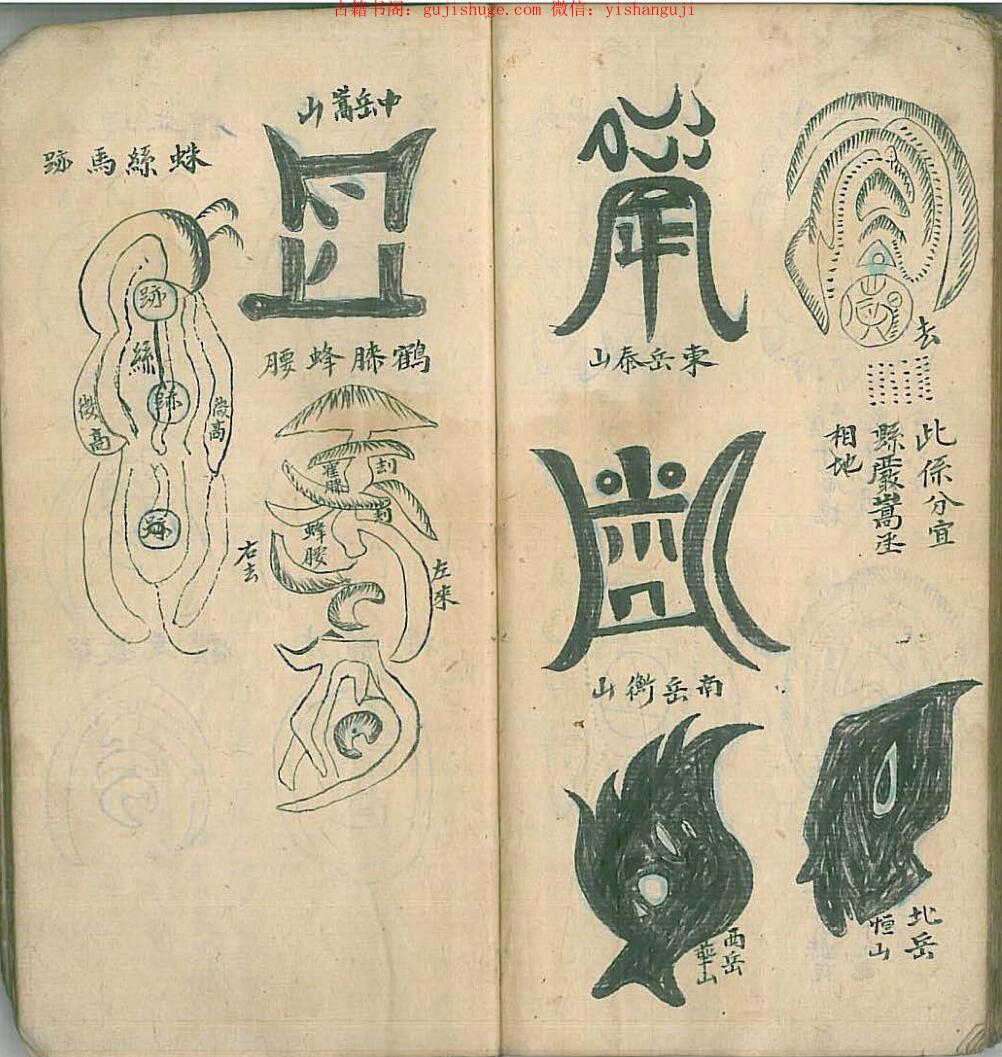 古籍书阁：gujishuge.com 微信：yishanguji
去
此係分宜
縣嚴嵩丞
相地
北岳
恒山
東岳泰山
南岳衡山
西岳
華山
中岳嵩山
鶴膝蜂腰
蜂腰
左來
右去
蛛絲馬跡
跡
絲
跡
微高
微高
跡